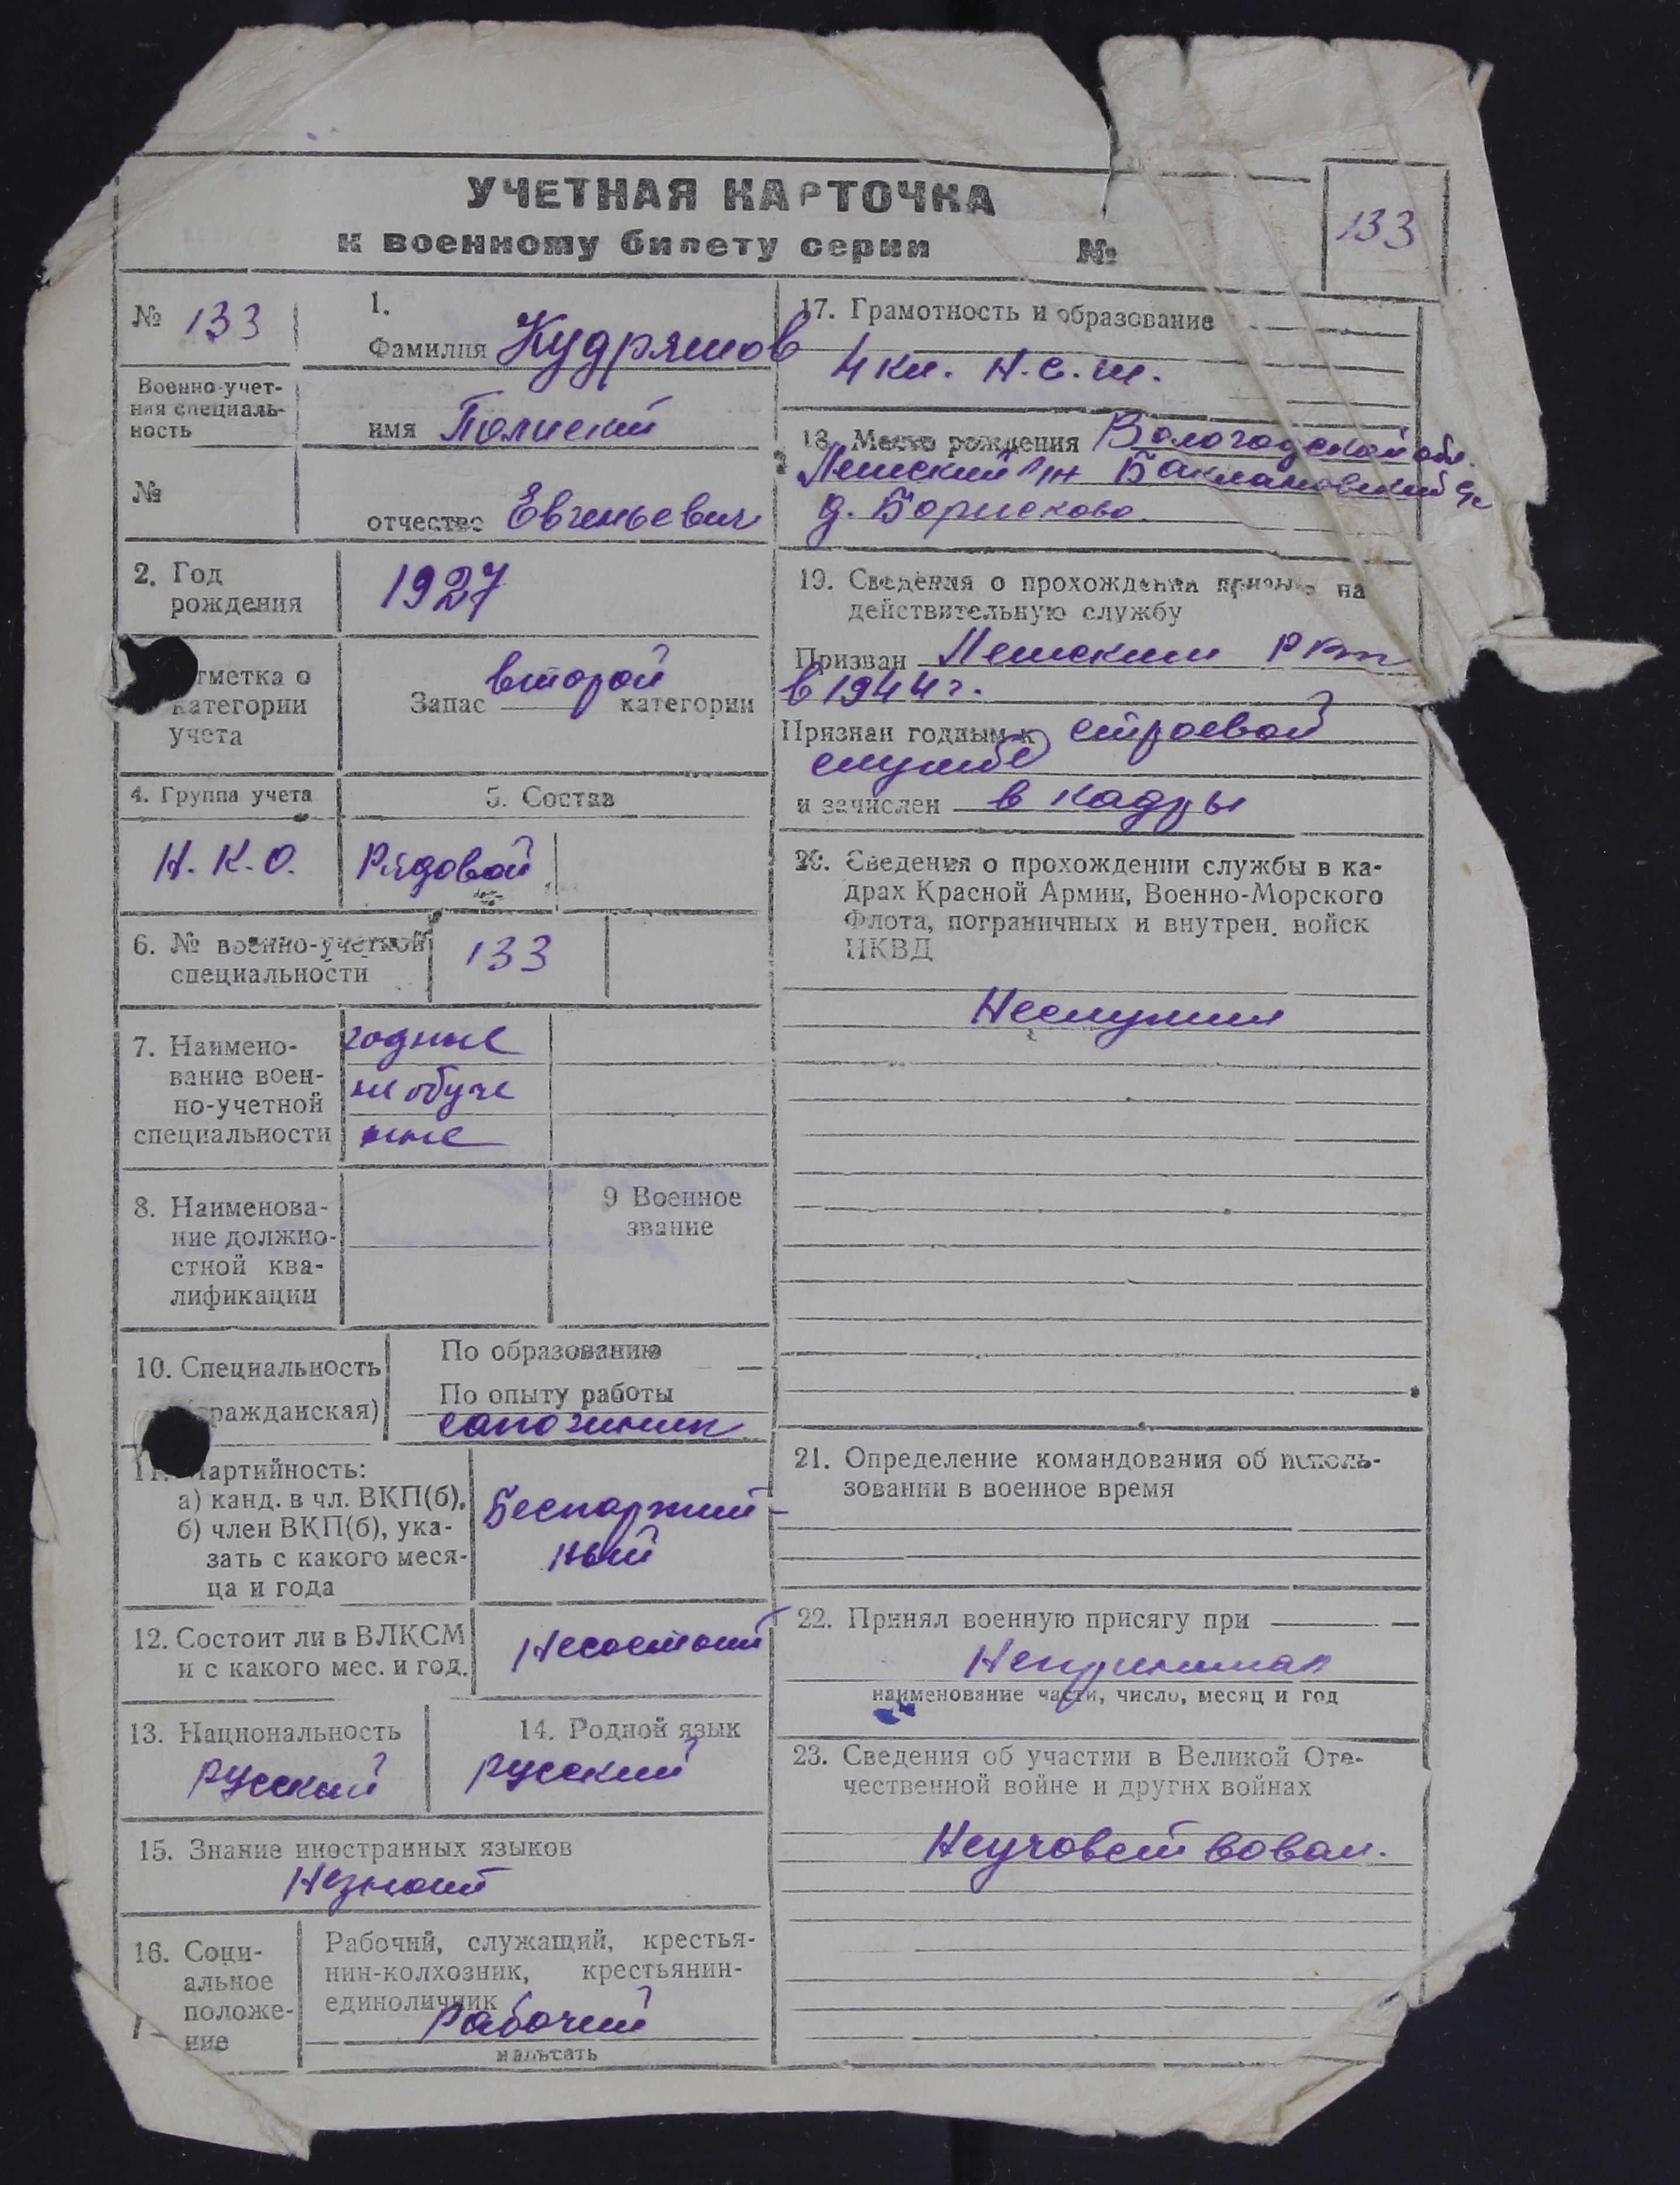 УЧЕТНАЯ КАРТОЧКА
к военному билету серии №
133
№ 133
Военно-учет-
ная специаль-
ность
№
1.
Фамилия Кудряшов
имя
отчество Евгеньевич
2. Год
рождения
1927
тметка о
категории
учета
второй
Запас категории
4. Группа учета
5. Состав
Н. К. О.
Рядовой
6. № военно-учетной
специальности
133
7. Наимено-
вание воен-
но-учетной
специальности
годные
не обуче
нные
8. Наименова-
ние должно-
стной ква-
лификации
9 Военное
звание
10. Специальность
ражданская)
По образованию
По опыту работы
сапожник
11. Партийность:
а) канд. в чл. ВКП(б),
б) член ВКП(б), ука-
зать с какого меся-
ца и года
Беспартий-
ный
12. Состоит ли в ВЛКСМ
и с какого мес. и год.
Несостоит
13. Национальность
русский
14. Родной язык
русский
15. Знание иностранных языков
Незнает
16. Соци-
альное
положе-
ние
Рабочий, служащий, крестья-
нин-колхозник, крестьянин-
единоличник
Рабочий
написать
17. Грамотность и образование
4 кл. Н.С.Ш.
18. Место рождения Вологодской обл.
Лежский р/н Баклановский с/с
д. Борисково
19. Сведения о прохождении призыва на
действительную службу
Призван Лежским РВК
в 1944 г.
Признан годным к строевой
службе
и зачислен в кадры
20. Сведения о прохождении службы в ка-
драх Красной Армии, Военно-Морского
Флота, пограничных и внутрен. войск
НКВД
Неслужил
21. Определение командования об исполь-
зовании в военное время
22. Принял военную присягу при
Непринимал
наименование части, число, месяц и год
23. Сведения об участии в Великой Оте-
чественной войне и других войнах
Неучовствовал.